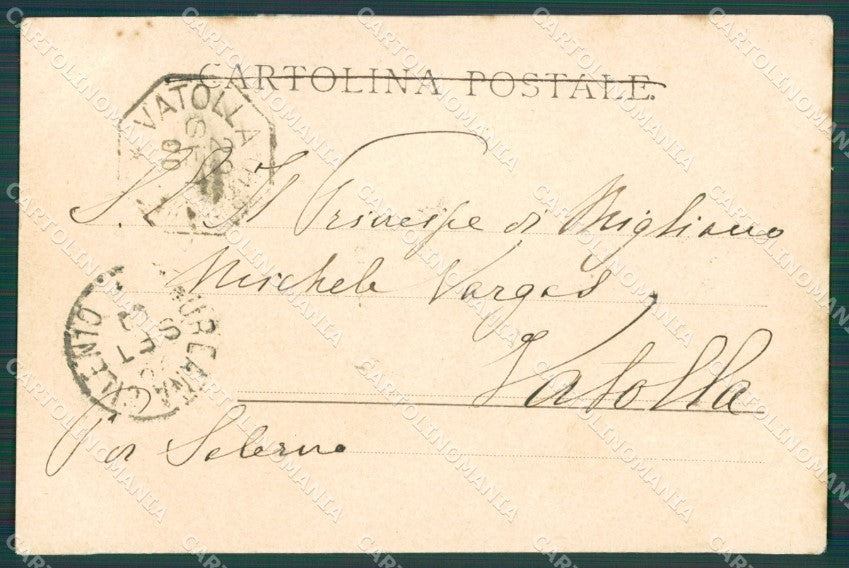 CARTOLINA POSTALE.
VATOLLA
SET
00
S. E. Il Principe di Migliano
Michele Vargas
Vatolla
Per Salerno
LAUREANA CILENTO
SET
CARTOLINOMANIA